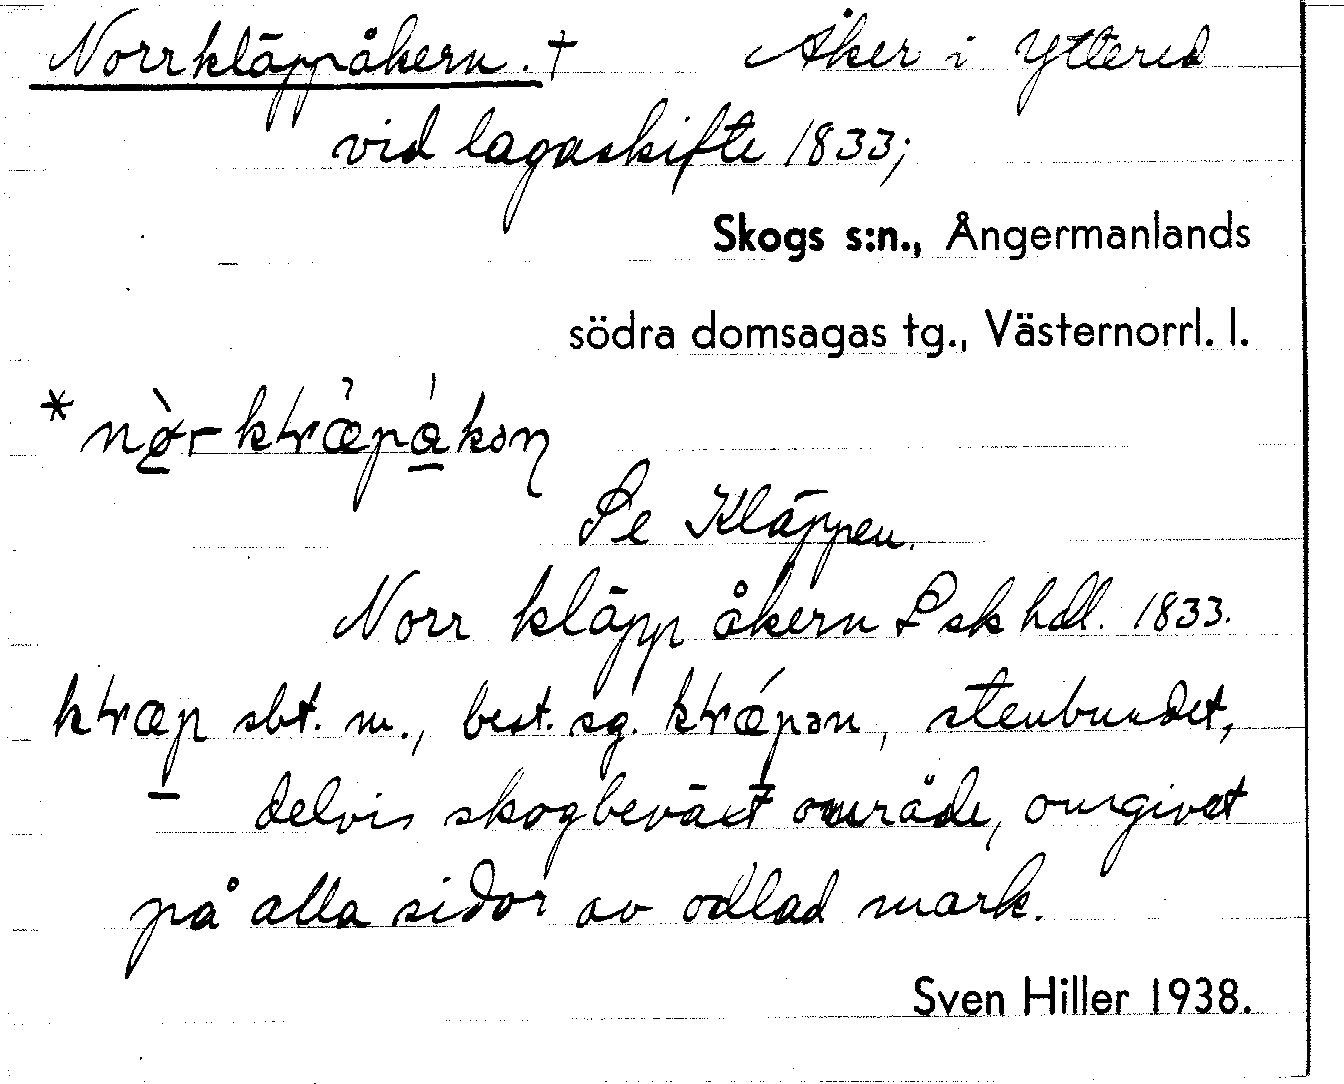 Norrkläppåkern. † Åker i Yttered
vid lagaskifte 1833;
Skogs s:n., Ångermanlands
södra domsagas tg., Västernorrl. l.
Se Kläppen.
Norr kläpp åkern Lskhdl. 1833.
sbt. m., best. sg. stenbundet,
delvis skogbeväxt område, omgivet
på alla sidor av odlad mark.
Sven Hiller 1938.